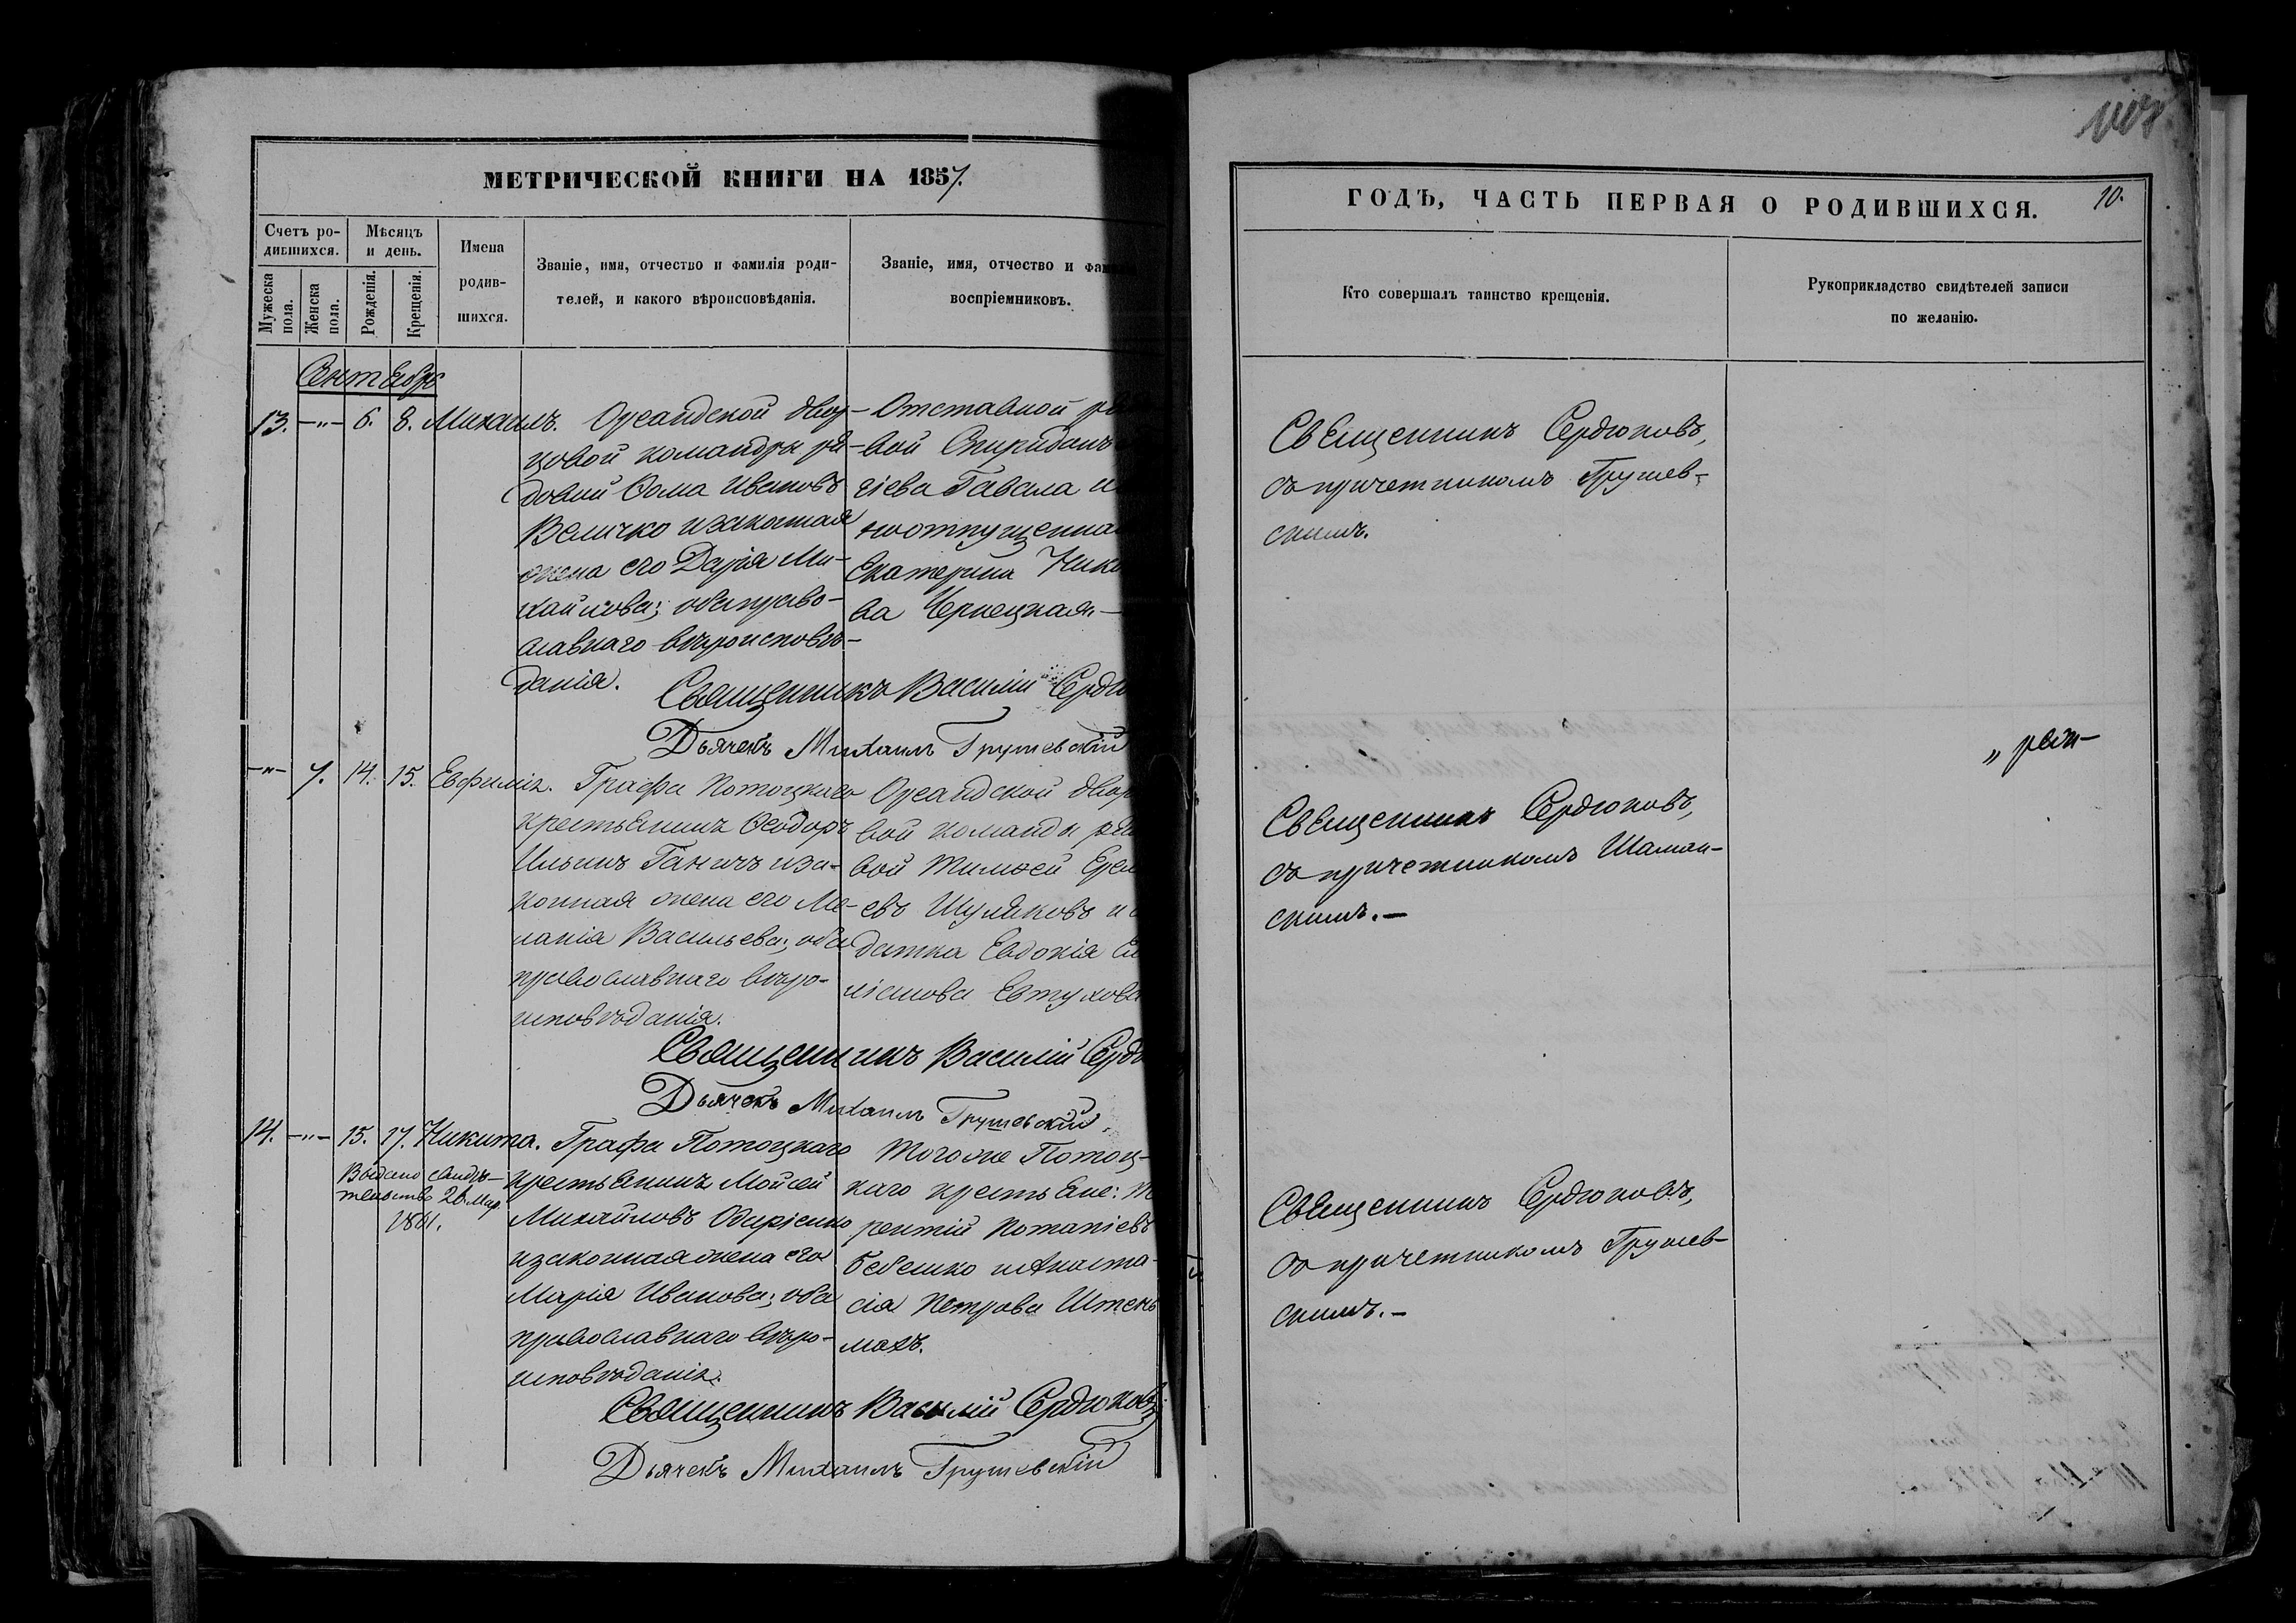 МЕТРИЧЕСКОЙ КНИГИ НА 1857.
Счетъ ро-
дившихся.
Мѣсяцъ
и день.
Мужеска
пола.
Женска
пола.
Рожденія.
Крещенія.
Имена
родив-
шихся.
Званіе, имя, отчество и фамилія роди-
телей, и какого вѣроисповѣданія.
Званіе, имя, отчество и фам
воспріемниковъ.
Сентябрь
13. —„— 6. 8. Михаилъ.
Ореандской двор-
цовой команды ря-
довой Ѳома Ивановъ
Величко и законная
жена его Дарія Ми-
хайлова; оба право-
славнаго вѣроисповѣ-
данія.
Отставной ря
вой Спиридонъ
гіевъ Гавала и
ноотпущенная
Екатерина Нико
ва Чернецкая.—
Священникъ Василій Сердю
Дьячекъ Михаилъ Грушевскій
—„— 7. 14. 15. Евфимія.
Графа Потоцкаго
крестьянинъ Ѳеодоръ
Ильинъ Ганичъ и за-
конная жена его Ме-
ланія Васильева; оба
православнаго вѣро-
исповѣданія.
Ореандской двор
вой команды ряд
вой Тимоѳей Ерем
евъ Шуляковъ и
датка Евдокія Ем
ліанова Евтухова
Священникъ Василій Серд
Дьячекъ Михаилъ Грушевскій.
14. —„— 15. 17. Никита.
Выдано свидѣ-
тельство 26 Мар.
1861.
Графа Потоцкаго
крестьянинъ Мойсей
Михайловъ
и законная жена его
Марія Иванова; оба
православнаго вѣро-
исповѣданія.
Того же Потоц-
каго крестьяне:
рентій Потапіевъ
Бебешко и Анаста-
сія Петрова Штень
махъ.
Священникъ Василій Сердюковъ
Дьячекъ Михаилъ Грушевскій
ГОДЪ, ЧАСТЬ ПЕРВАЯ О РОДИВШИХСЯ.
10.
Кто совершалъ таинство крещенія.
Рукоприкладство свидѣтелей записи
по желанію.
Священникъ Сердюковъ,
съ причетникомъ Грушев-
скимъ.
Священникъ Сердюковъ,
съ причетникомъ Шаман-
скимъ.—
Священникъ Сердюковъ,
съ причетникомъ Грушев-
скимъ.—